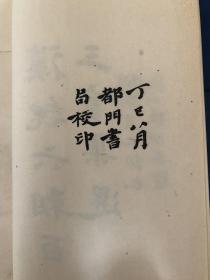 丁巳八月
都門書
局校印